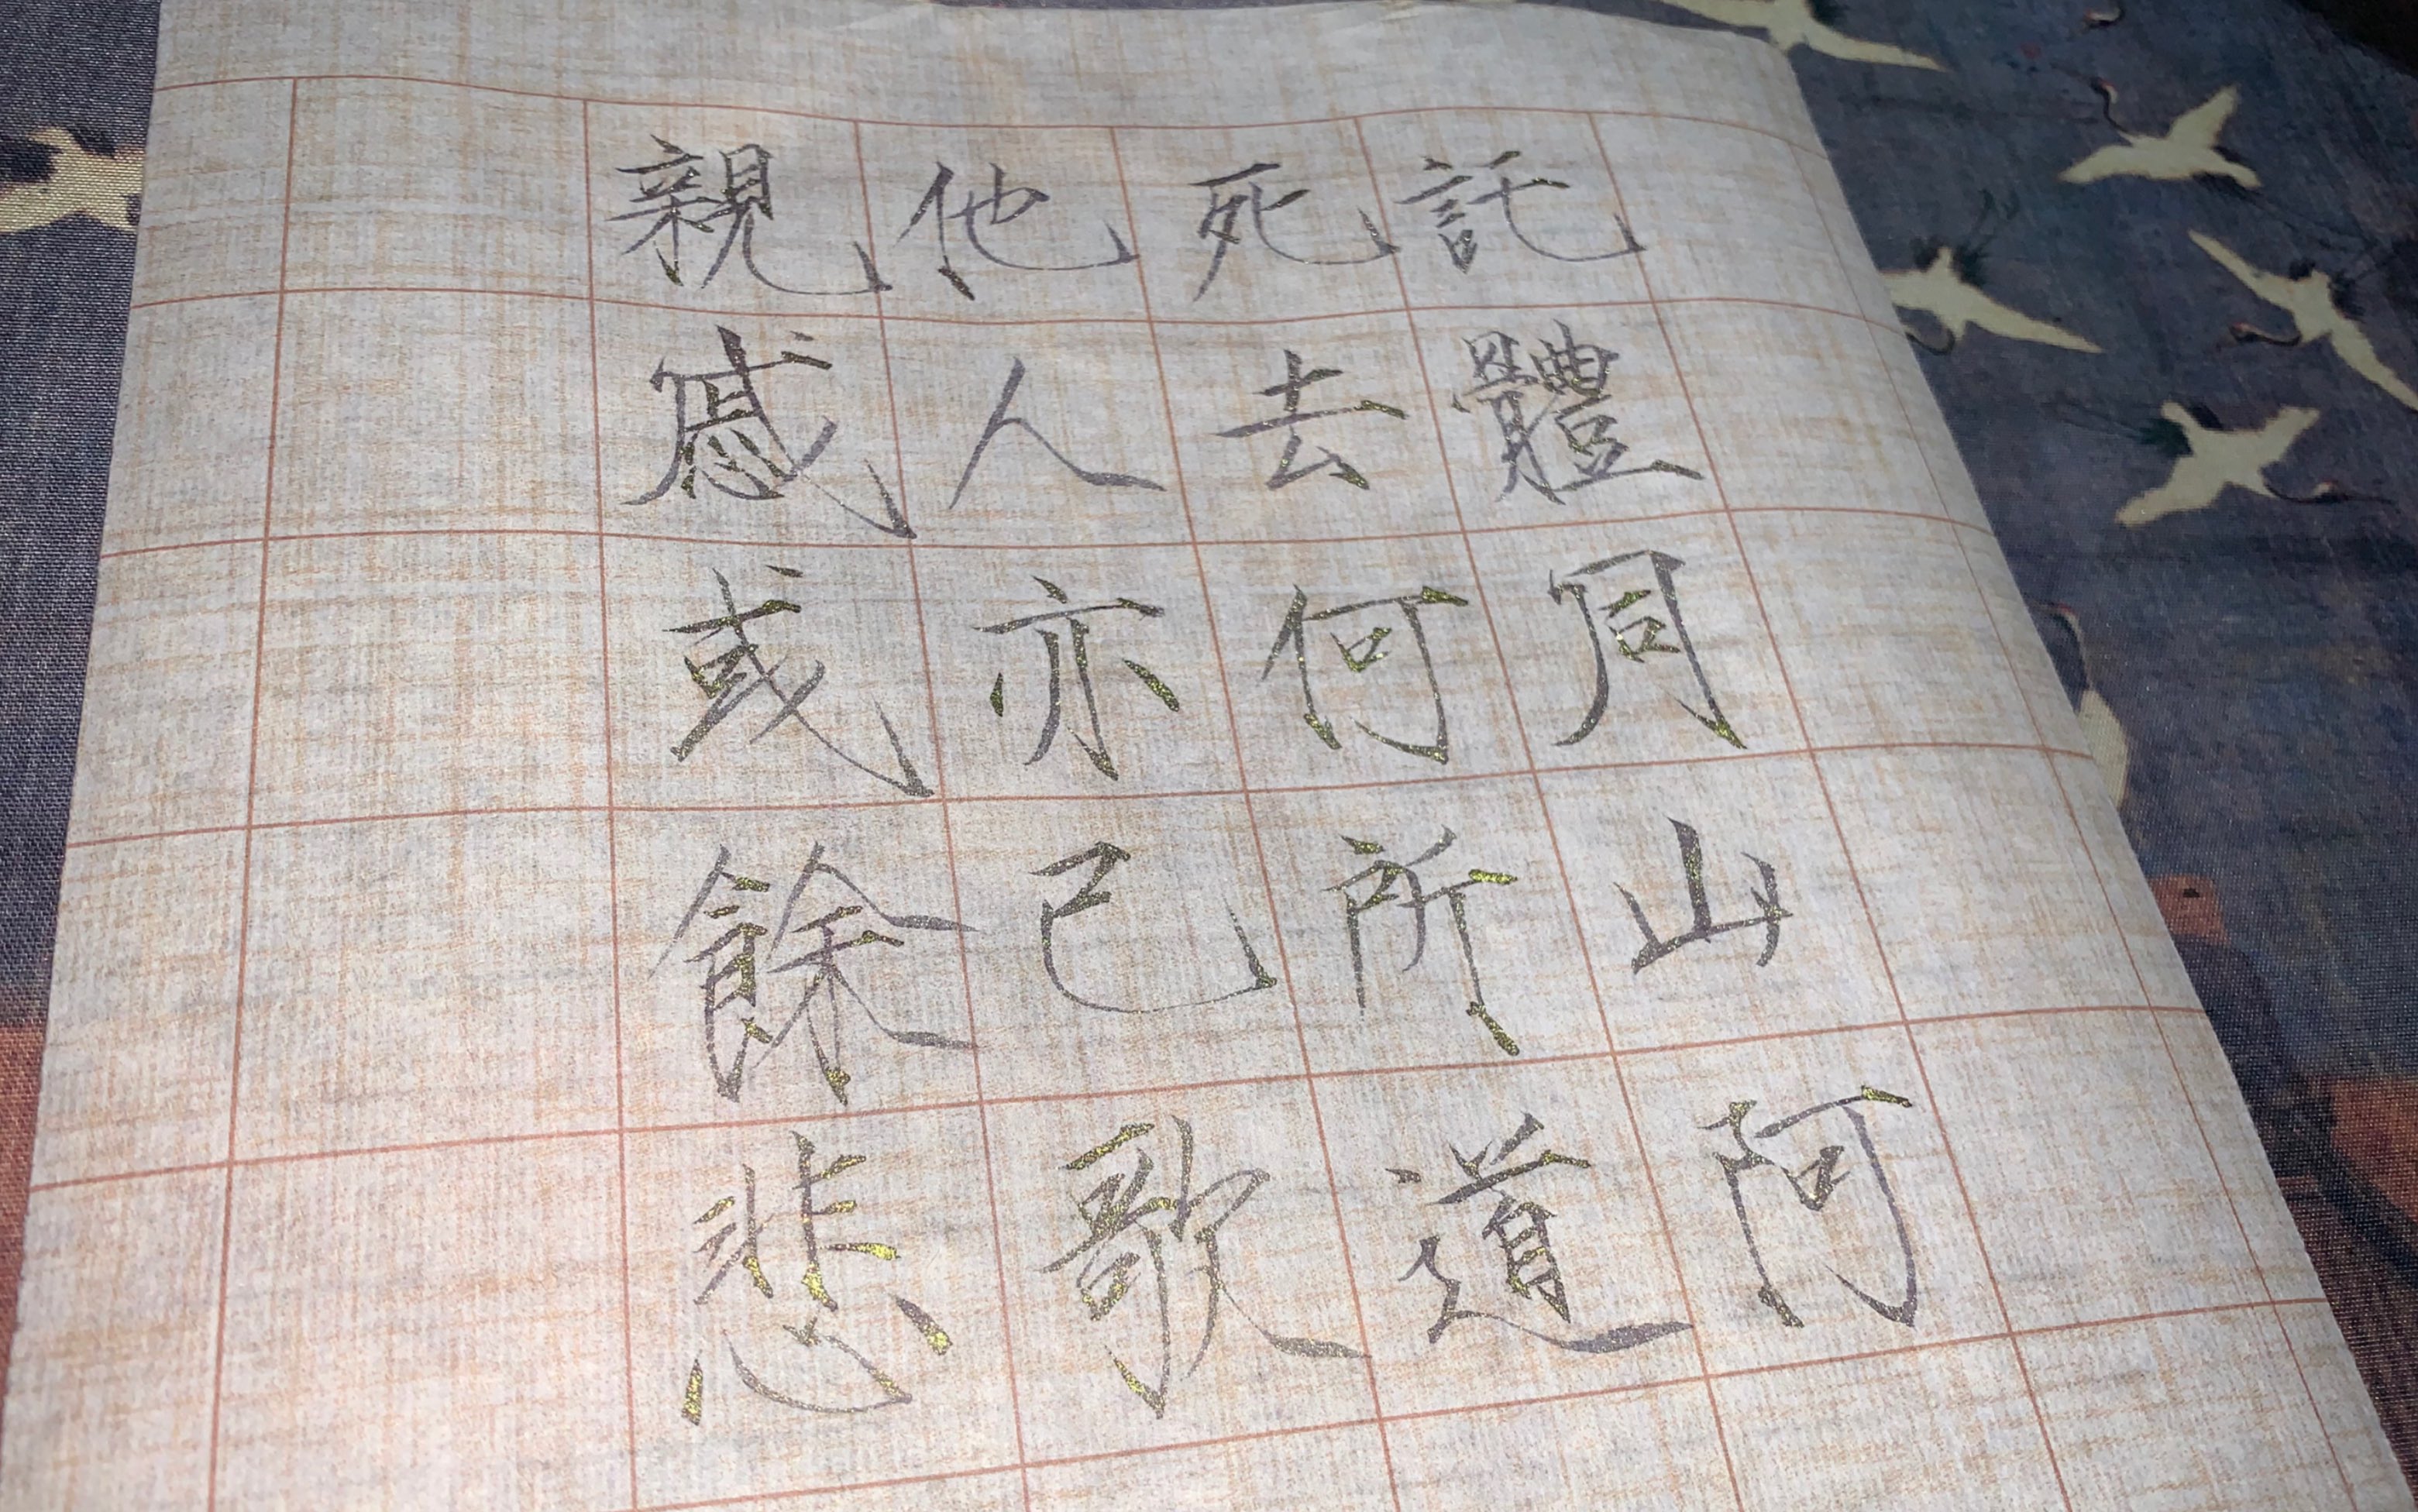 親慼或餘悲
他人亦已歌
死去何所道
託體同山阿